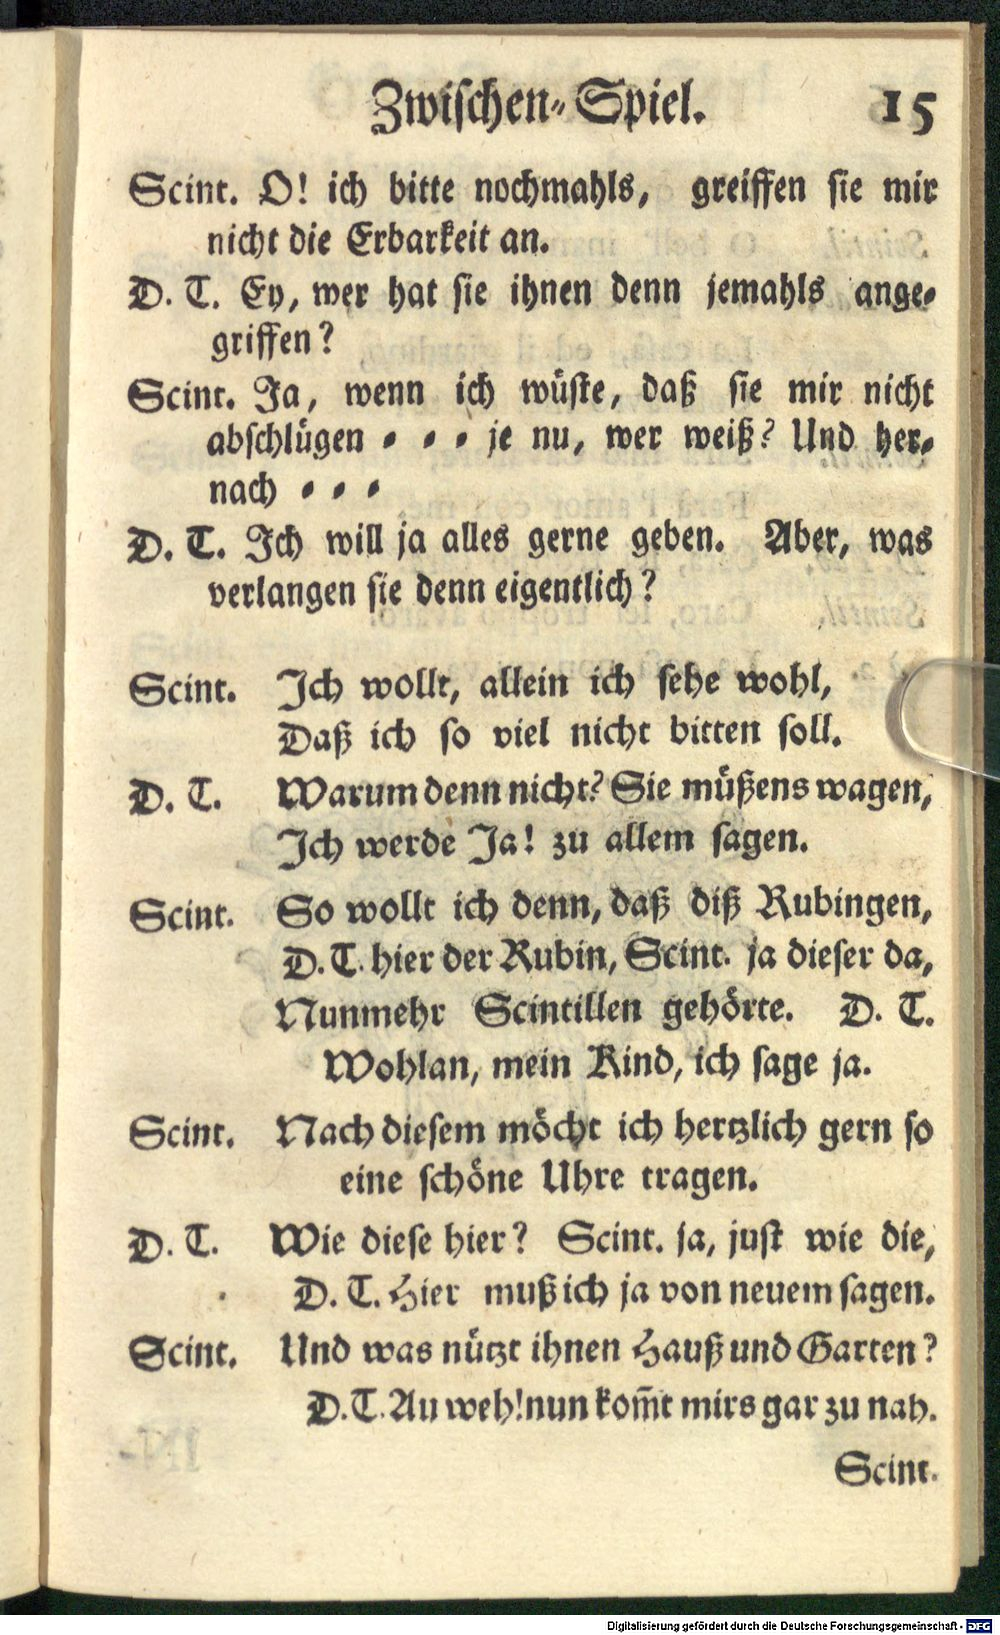 Zwischen-Spiel. 15
Scint. O! ich bitte nochmahls, greiffen sie mir
nicht die Erbarkeit an.
D. T. Ey, wer hat sie ihnen denn jemahls ange-
griffen?
Scint. Ja, wenn ich wüste, daß sie mir nicht
abschlügen - - - je nu, wer weiß? Und her-
nach - - -
D. T. Ich will ja alles gerne geben. Aber, was
verlangen sie denn eigentlich?
Scint. Ich wollt, allein ich sehe wohl,
Daß ich so viel nicht bitten soll.
D. T. Warum denn nicht? Sie müßens wagen,
Ich werde Ja! zu allem sagen.
Scint. So wollt ich denn, daß diß Rubingen,
D. T. hier der Rubin, Scint. ja dieser da,
Nunmehr Scintillen gehörte. D. T.
Wohlan, mein Kind, ich sage ja.
Scint. Nach diesem möcht ich hertzlich gern so
eine schöne Uhre tragen.
D. T. Wie diese hier? Scint. ja, just wie die,
D. T. Hier muß ich ja von neuem sagen.
Scint. Und was nützt ihnen Hauß und Garten?
D. T. Au weh! nun kom̅t mirs gar zu nah.
Scint.
Digitalisierung gefördert durch die Deutsche Forschungsgemeinschaft - DFG